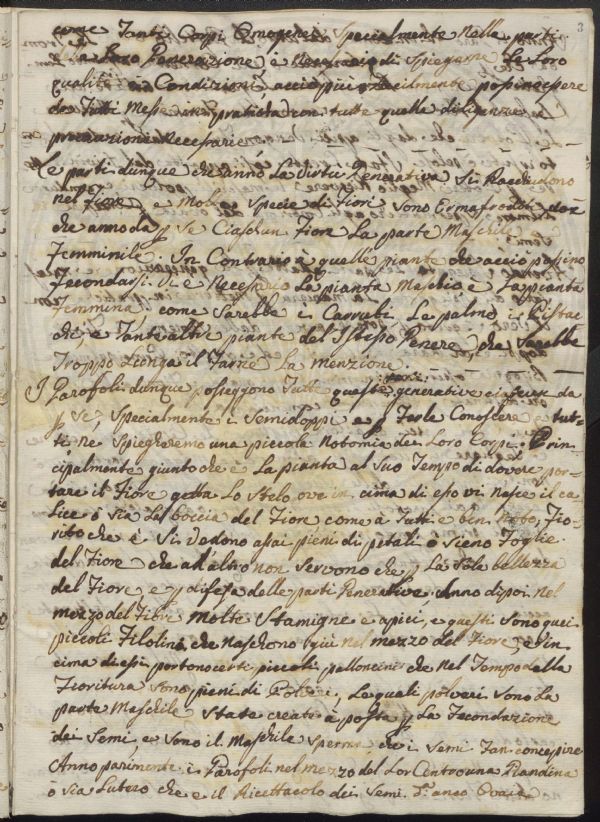 3
come Tanti Corpi Omogenei specialmente nelle parti
della Loro Generazione è Necessario di Spiegarne Le Loro
qualità e Condizioni acciò più Facilmente possin essere
da Tutti Messe in pratticha con tutte quelle diligenze e
precauzioni Necessarie
Le parti dunque che anno La Virtù Generativa si Racchiudono
nel fiore, e Molte specie di Fiori sono Ermafroditi
che anno da p se Ciaschun Fiore La parte Maschile e
Femminile. In Contrario à quelle piante che acciò possino
Fecondarsi Vi è Necessario La pianta Maschio è La pianta
Femmina come Sarebbe i Carrubi Le palme i Pistac
chi, e Tante altre piante del Istesso Genere che Sarebbe
Troppo Lunga il Farne La Menzione
I Garofoli dunque posseggono Tutte queste parti generative ciascun da
p se, specialmente i Semidoppi e p Farle Conoscere a tut-
ti ne Spiegheremo una piccola Notomia dei Loro Corpi. Prin-
cipalmente giunto che è La pianta al suo Tempo di dovere por-
tare il Fiore getta Lo stelo ove in cima di esso vi nasce il ca
lice o sia La boccia del Fiore come a Tutti e ben Noto, Fio-
rito che è Si vedono assai pieni di petali o sieno Foglie
del Fiore che ad altro non servono che p La Sola bellezza
del Fiore e p difesa delle parti Generative. Anno dipoi nel
mezzo del Fiore Molte Stamigne e apici, e questi sono quei
piccoli Filolini che Naschono nel mezzo del Fiore, e in
cima di essi portono certi piccoli palloncini che Nel Tempo della
Fioritura sono pieni di Polveri, Le quali polveri sono La
parte Maschile state create à posta p La Fecondazione
dei Semi e sono il Maschile Sperma che i Semi Fan concepire
Anno parimente i Garofoli nel mezzo del Lor Centro una Glandina
o sia Lutero che e il Ricettacolo dei Semi